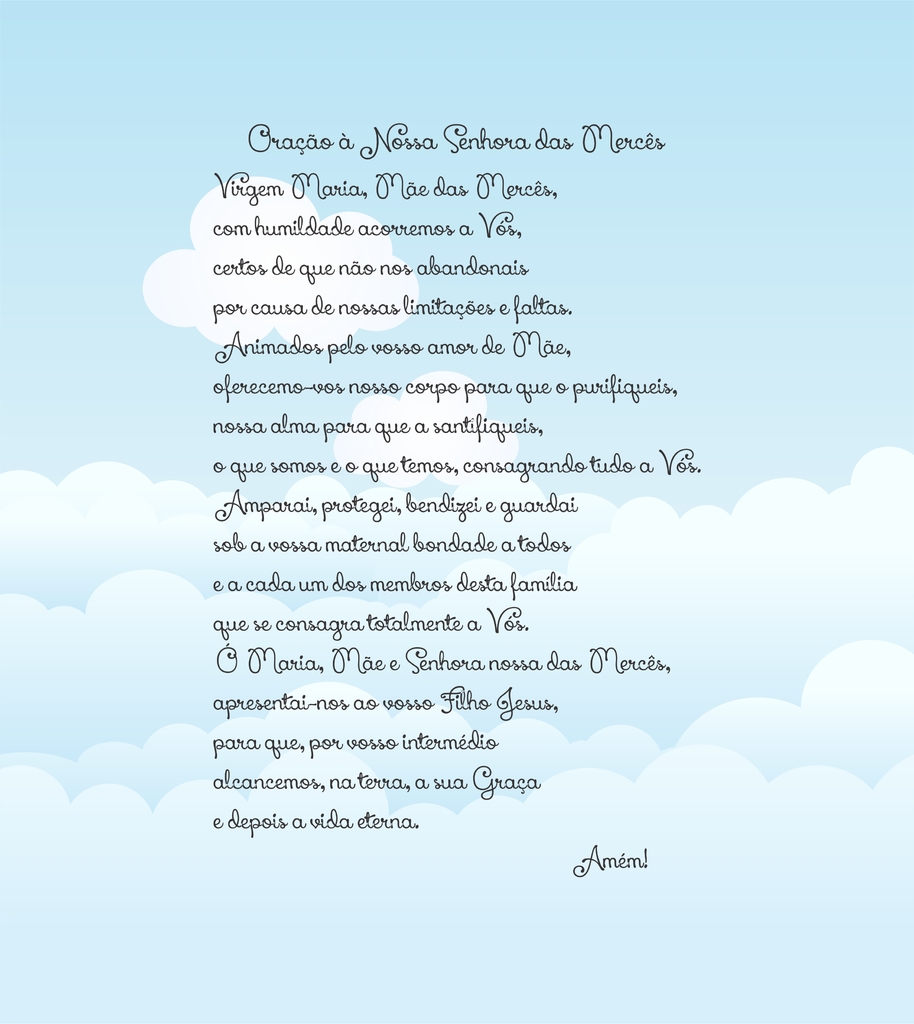 Oração à Nossa Senhora das Mercês
Virgem Maria, Mãe das Mercês,
com humildade acorremos a Vós,
certos de que não nos abandonais
por causa de nossas limitações e faltas.
Animados pelo vosso amor de Mãe,
oferecemo-vos nosso corpo para que o purifiqueis,
nossa alma para que a santifiqueis,
o que somos e o que temos, consagrando tudo a Vós.
Amparai, protegei, bendizei e guardai
sob a vossa maternal bondade a todos
e a cada um dos membros desta família
que se consagra totalmente a Vós.
Ó Maria, Mãe e Senhora nossa das Mercês,
apresentai-nos ao vosso Filho Jesus,
para que, por vosso intermédio
alcancemos, na terra, a sua Graça
e depois a vida eterna.
Amém!